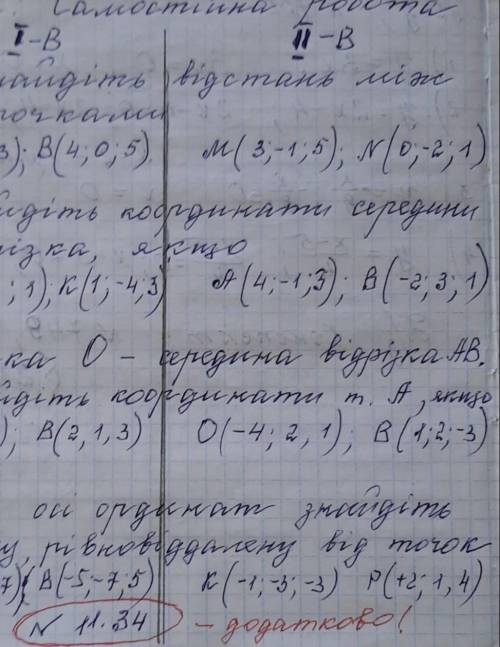 Самостійна робота
I-В II-В
найдіть відстань між
точками
3); В(4; 0; 5) М(3; -1; 5); N(0; -2; 1)
йдіть координати середини
різка, якщо
; 1); К(1; -4; 3) А(4; -1; 3); В(-2; 3; 1)
ка О - середина відрізка АВ.
йдіть координати т. А, якщо
); В(2, 1, 3) О(-4; 2, 1); В(1; 2; -3)
осі ординат знайдіть
у, рівновіддалену від точок
7); В(-5; -7; 5) К(-1; -3; -3) Р(+2; 1, 4)
N 11.34 - додатково!